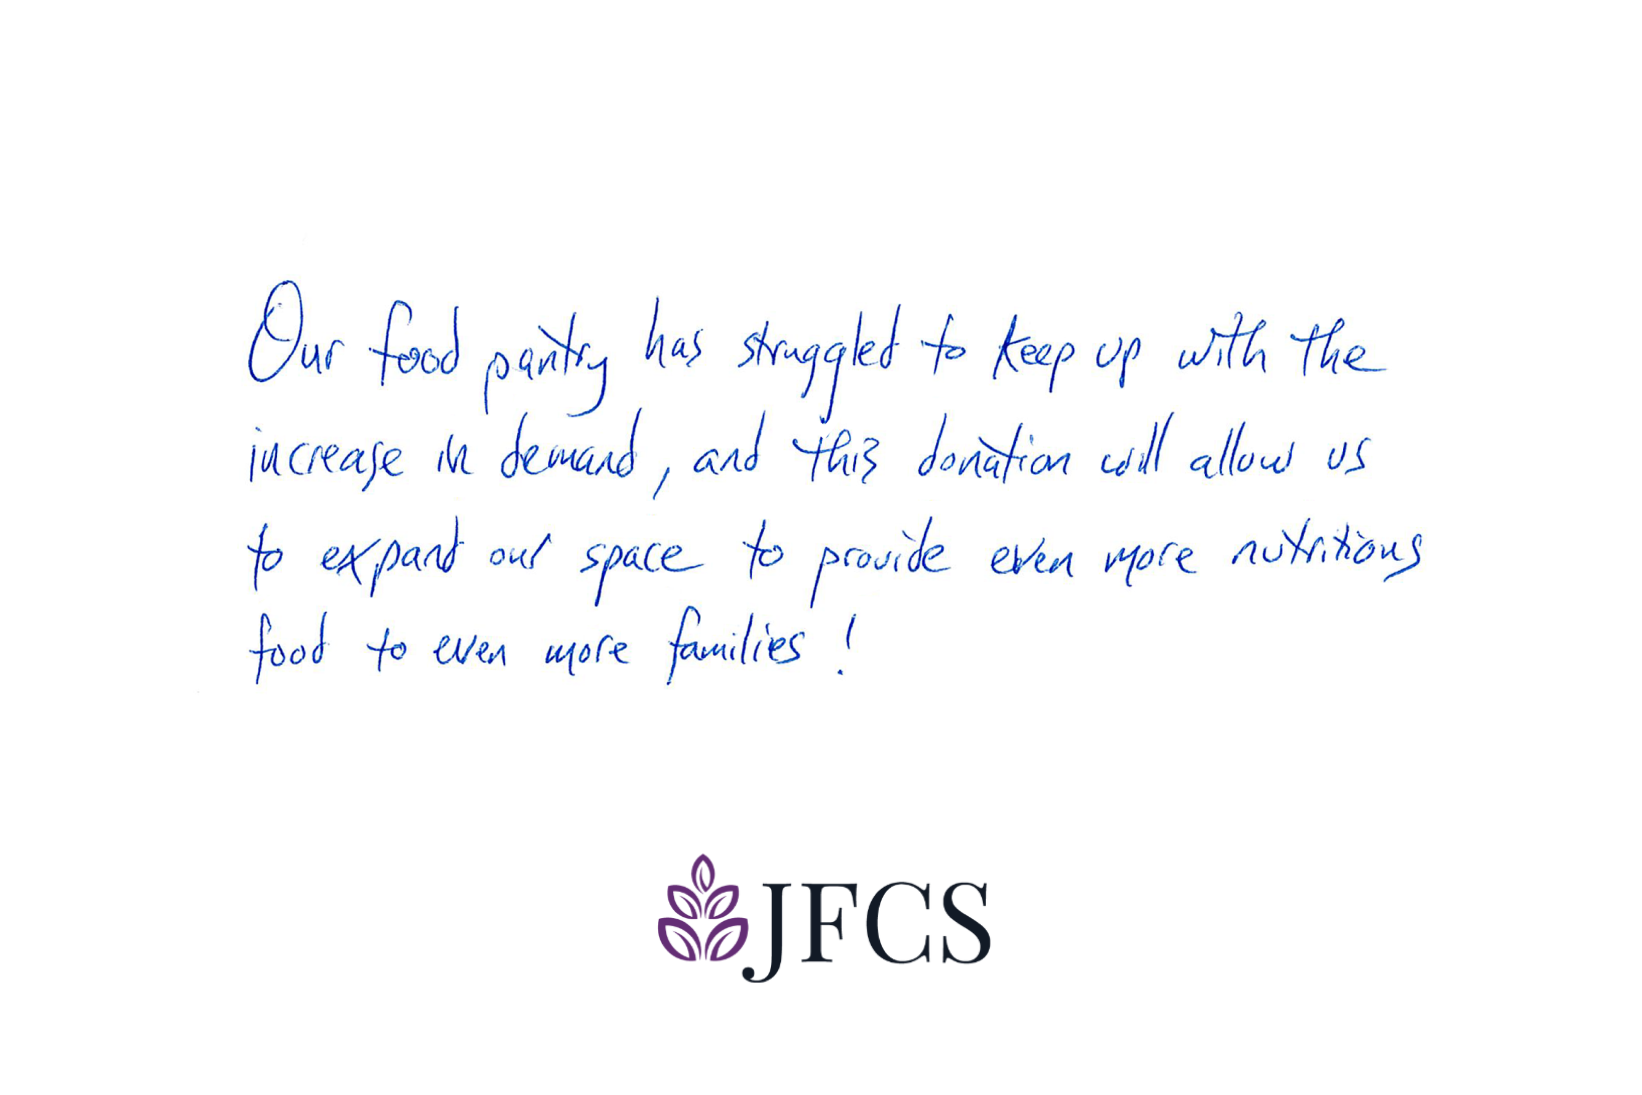 Our food pantry has struggled to keep up with the
increase in demand, and this donation will allow us
to expand our space to provide even more nutritious
food to even more families!
JFCS